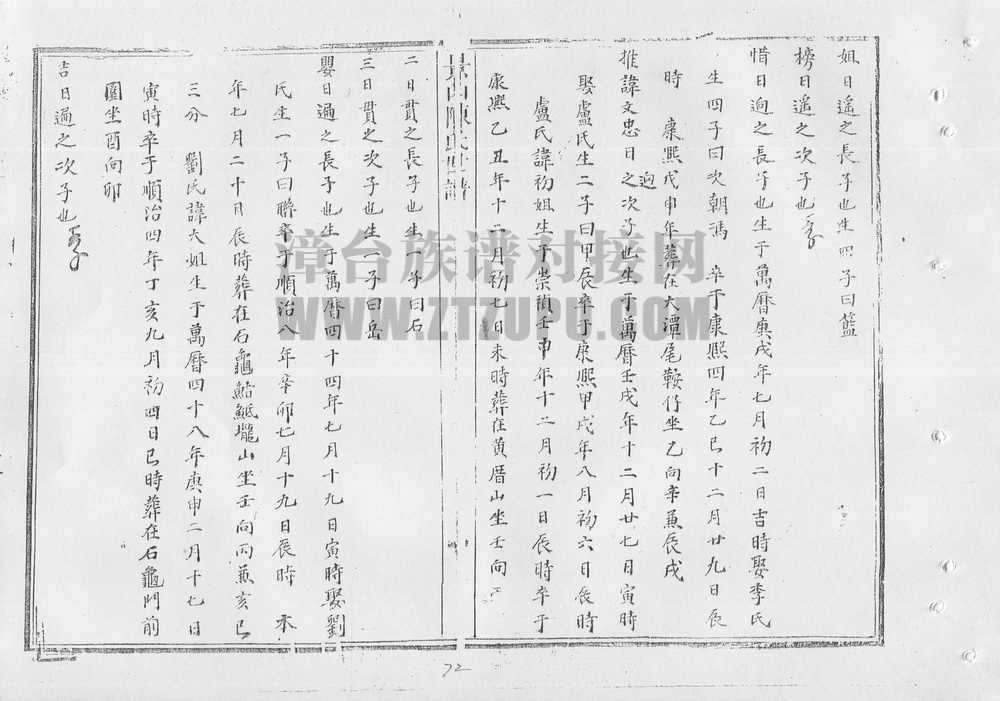 姐日遙之長子也生四子曰籃
榜日遙之次子也
惜日逈之長子也生于萬曆庚戌年七月初二日吉時娶李氏
生四子曰次朝馮 卒于康熙四年乙巳十二月廿九日辰
時 康熙戊申年葬在大潭尾鞍仔坐乙向辛兼辰戌
推諱文忠日逈之次子也生于萬曆壬戌年十二月廿七日寅時
娶盧氏生二子曰甲辰卒于康熙甲戌年八月初六日辰時
盧氏諱初姐生于崇禎壬申年十二月初一日辰時卒于
康熙乙丑年十二月初七日未時葬在黄厝山坐壬向
陳氏世譜
二日貫之長子也生一子曰石
三日貫之次子也生一子曰岳
嬰日過之長子也生于萬曆四十四年七月十九日寅時娶劉
氏生一子曰聯卒于順治八年辛卯七月十九日辰時 本
年七月二十日辰時葬在石龜鮕鮘壠山坐壬向丙兼亥巳
三分 劉氏諱六姐生于萬曆四十八年庚申二月十七日
寅時卒于順治四年丁亥九月初四日巳時葬在石龜門前
園坐酉向卯
吉日過之次子也
72
漳台族谱对接网
WWW.ZTZUPU.COM